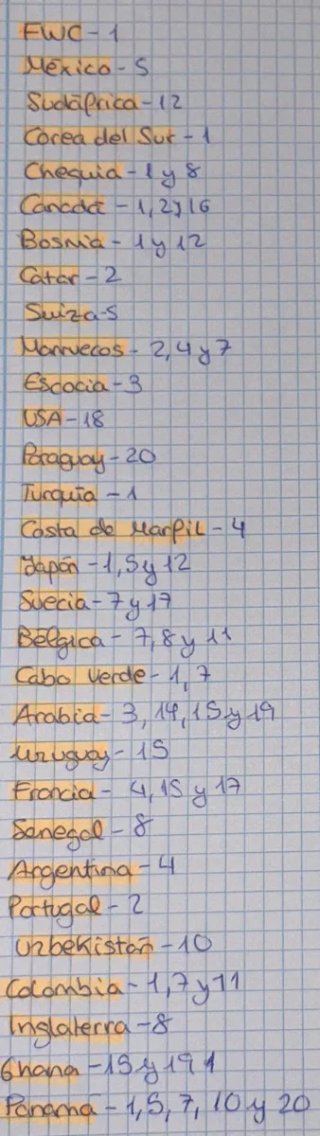 FWC - 1
México - 5
Sudáfrica - 12
Corea del Sur - 1
Chequia - 1 y 8
Canadá - 1, 2 y 16
Bosnia - 1 y 12
Catar - 2
Suiza - 5
Marruecos - 2, 4 y 7
Escocia - 3
USA - 18
Paraguay - 20
Turquía - 1
Costa de Marfil - 4
Japón - 1, 5 y 12
Suecia - 7 y 17
Bélgica - 7, 8 y 11
Cabo Verde - 1, 7
Arabia - 3, 14, 15 y 19
Uruguay - 15
Francia - 4, 15 y 17
Senegal - 8
Argentina - 4
Portugal - 2
Uzbekistán - 10
Colombia - 1, 7 y 11
Inglaterra - 8
Ghana - 15 y 19
Panamá - 1, 5, 7, 10 y 20